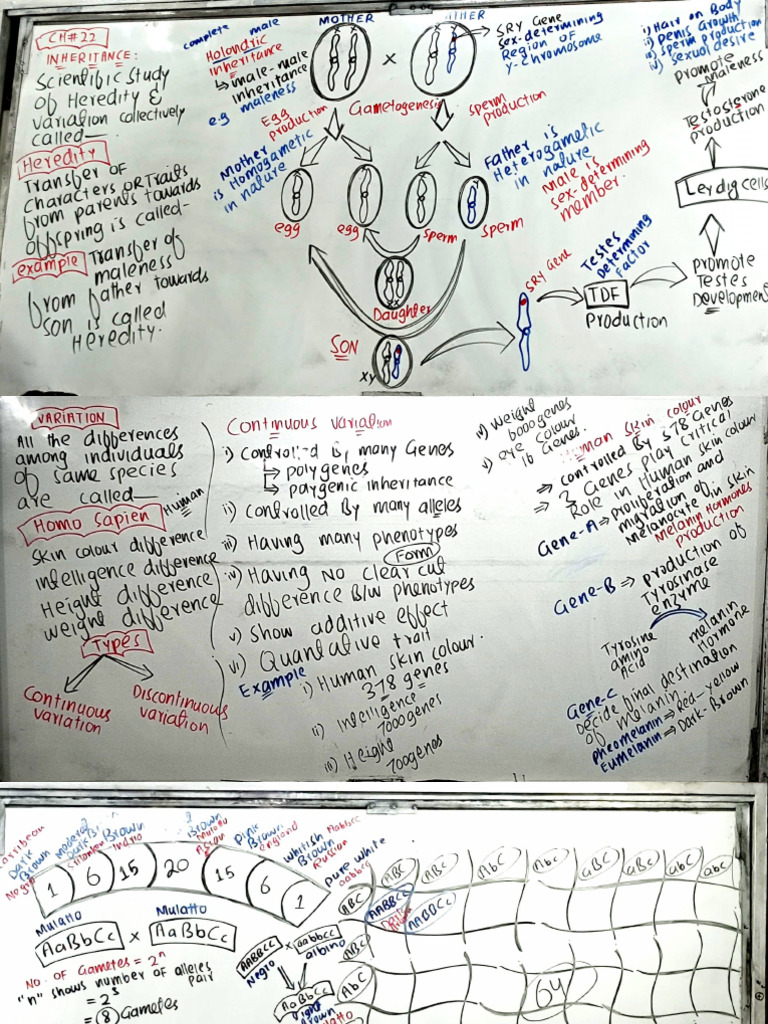 CH#22
INHERITANCE:
Scientific Study
of Heredity &
variation collectively
called—
Heredity
Transfer of
characters OR Traits
from parents towards
offspring is called-
example Transfer of
maleness
from father towards
son is called
Heredity.
complete male
Holondric
inheritance
↳ male-male
inheritance
e.g maleness
MOTHER
×
SRY Gene
Sex-determining
Region OF
Y-chromosome
Gametogenesis
Egg
production
sperm
production
Mother
is Homogametic
in nature
Father is
Heterogametic
in nature
Male is
sex-determining
member.
egg
egg
sperm
sperm
Daughter
SON
XY
SRY Gene
Testes
Determining
Factor
TDF
production
promote
Testes
Development
Leydig cells
Testosterone
production
promote
maleness
i) Hair on Body
ii) penis Growth
iii) sperm production
iv) sexual desire
VARIATION
All the differences
among individuals
of same species
are called—
Human
Homo sapien
Skin colour difference
intelligence difference
Height difference
weight difference
Types
Continuous
variation
Discontinuous
variation
Continuous variation
i) controlled By many Genes
↳ polygenes
↳ polygenic inheritance
ii) controlled By many alleles
iii) Having many phenotypes
Form
iv) Having No clear cut
difference B/w phenotypes
v) Show additive effect
vi) Quantative trait
Example
i) Human skin colour.
378 genes
ii) intelligence
7000genes
iii) Height
700genes
iv) weight
6000genes
v) eye colour
16 Genes.
Human skin colour
⇒ controlled By 378 Genes
⇒ 3 Genes play critical
Role in Human skin colour
Gene-A ⇒ proliferation and
migration of
Melanocyte in skin
Melanin Hormones
production
Gene-B ⇒ production of
Tyrosinase
enzyme
Tyrosine
amino
Acid
melanin
Hormone
Gene-C
Decide final destination
of melanin
pheomelanin ⇒ Red-yellow
Eumelanin ⇒ Dark-Brown
Dark
Brown
Negro
Brown
India
Brown
Mulatto
Asian
pink
Brown
england
whitish
Brown
Russian
pure white
aabbcc
1 6 15 20 15 6 1
Mulatto
Mulatto
AaBbCc × AaBbCc
No. of Gametes = 2ⁿ
"n" shows number of alleles
pair
= 2³
= 8 Gametes
AABBCC × aabbcc
Negro
albino
AaBbCc
Brown
ABC
ABc
AbC
Abc
aBC
aBc
abC
abc
ABC
AABBCC
AABBCc
ABc
AbC
64